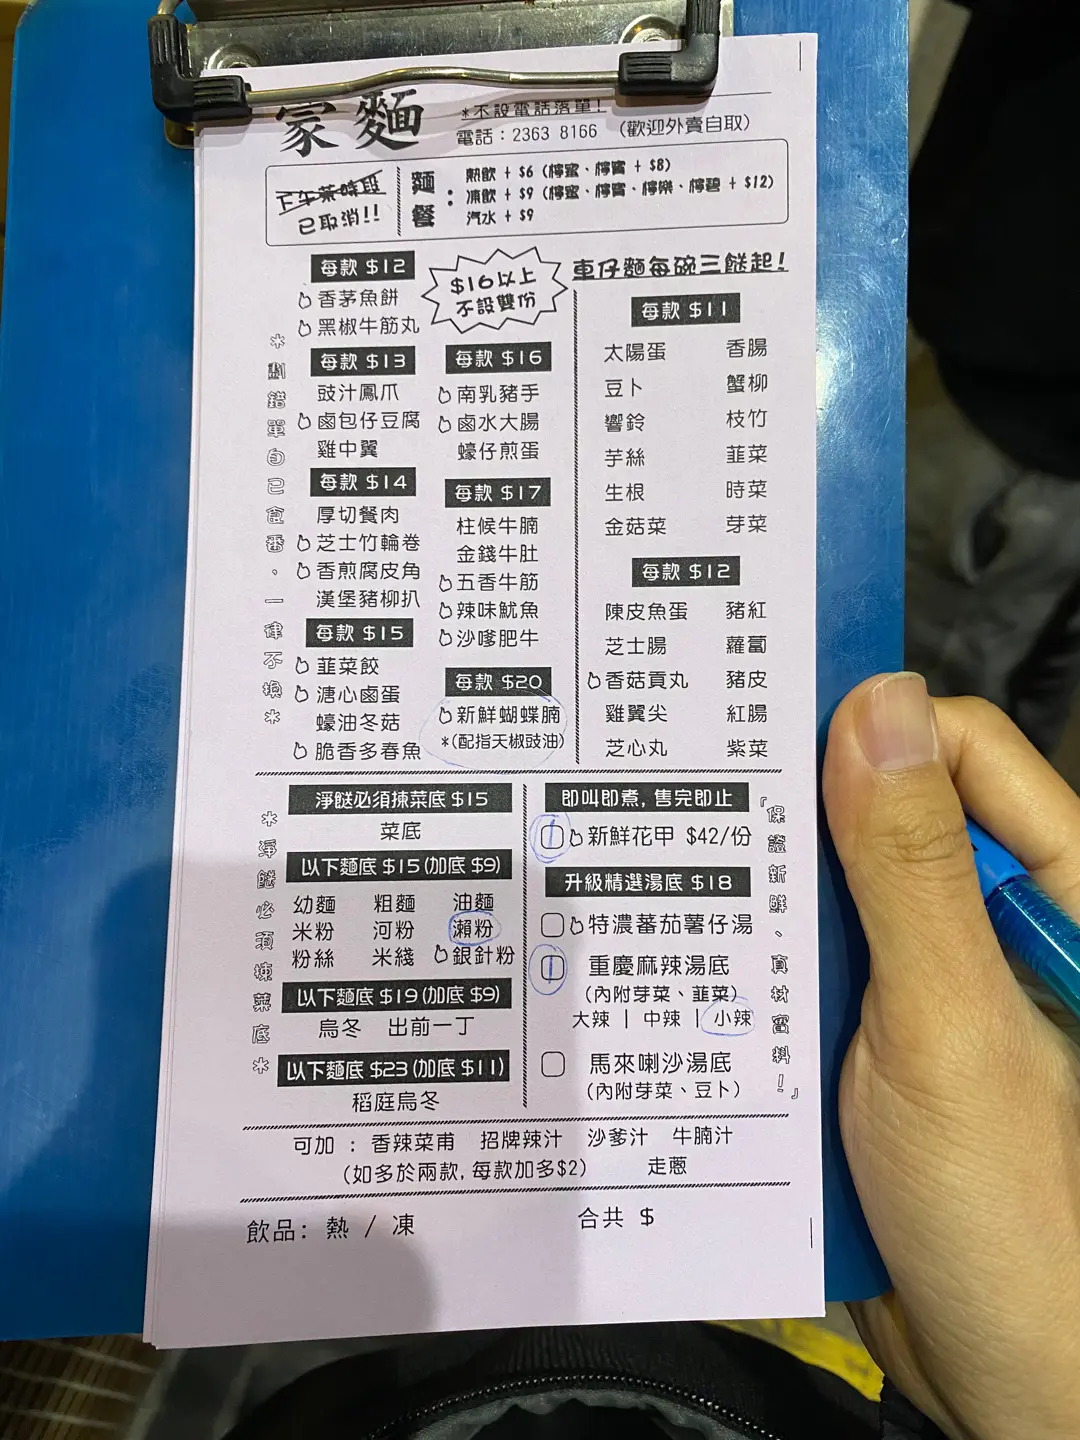 家麵
*不設電話落單!
電話：2363 8166 （歡迎外賣自取）
下午茶時段
已取消!!
麵餐：
熱飲 + $6 (檸蜜、檸賓 + $8)
凍飲 + $9 (檸蜜、檸賓、檸樂、檸碧 + $12)
汽水 + $9
*劃錯單自己食番、一律不換*
每款 $12
香茅魚餅
黑椒牛筋丸
每款 $13
豉汁鳳爪
鹵包仔豆腐
雞中翼
每款 $14
厚切餐肉
芝士竹輪卷
香煎腐皮角
漢堡豬柳扒
每款 $15
韮菜餃
溏心鹵蛋
蠔油冬菇
脆香多春魚
$16以上
不設雙份
每款 $16
南乳豬手
鹵水大腸
蠔仔煎蛋
每款 $17
柱候牛腩
金錢牛肚
五香牛筋
辣味魷魚
沙嗲肥牛
每款 $20
新鮮蝴蝶腩
*(配指天椒豉油)
車仔麵每碗三餸起!
每款 $11
太陽蛋 香腸
豆卜 蟹柳
響鈴 枝竹
芋絲 韮菜
生根 時菜
金菇菜 芽菜
每款 $12
陳皮魚蛋 豬紅
芝士腸 蘿蔔
香菇貢丸 豬皮
雞翼尖 紅腸
芝心丸 紫菜
*淨餸必須揀菜底*
淨餸必須揀菜底 $15
菜底
以下麵底 $15 (加底 $9)
幼麵 粗麵 油麵
米粉 河粉 瀨粉
粉絲 米綫 銀針粉
以下麵底 $19 (加底 $9)
烏冬 出前一丁
以下麵底 $23 (加底 $11)
稻庭烏冬
即叫即煮, 售完即止
1 新鮮花甲 $42/份
升級精選湯底 $18
特濃蕃茄薯仔湯
1 重慶麻辣湯底
(內附芽菜、韮菜)
大辣 | 中辣 | 小辣
馬來喇沙湯底
(內附芽菜、豆卜)
『保證新鮮、真材實料!』
可加 : 香辣菜甫 招牌辣汁 沙爹汁 牛腩汁
(如多於兩款, 每款加多$2) 走蔥
飲品: 熱 / 凍
合共 $